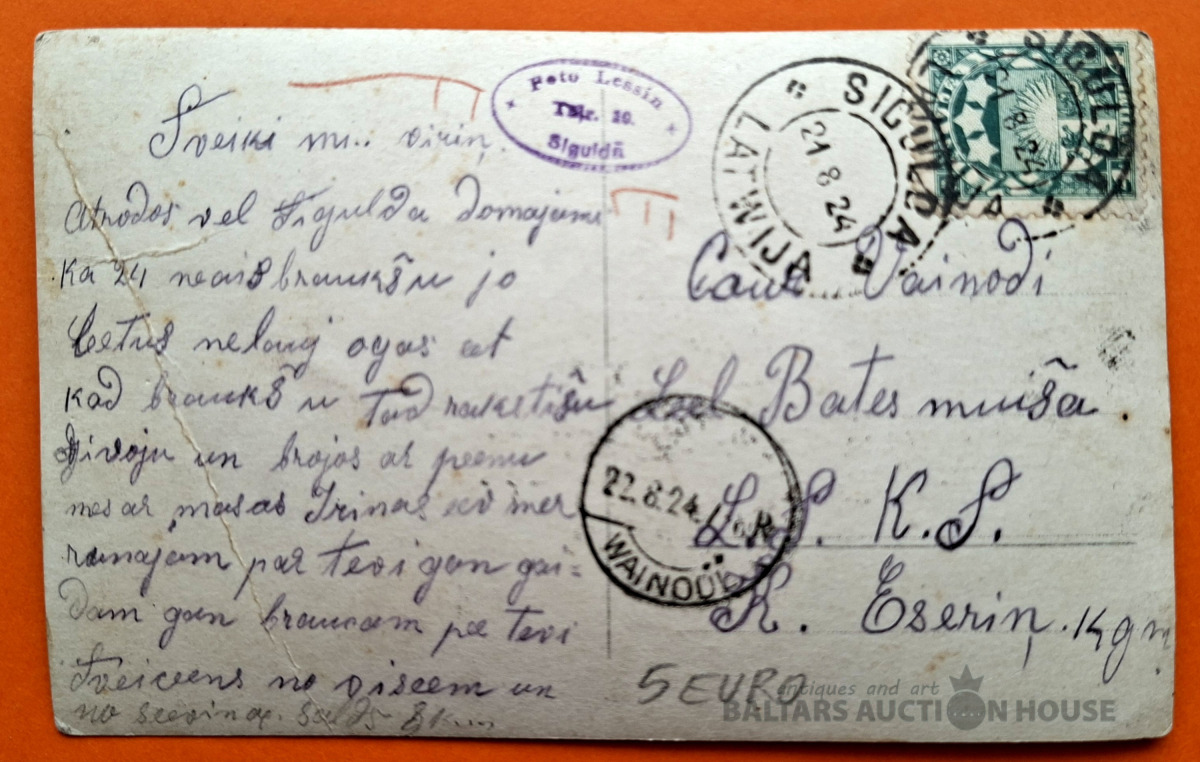 Sveiki mī.. viriņ
Atrodos vel Siguldā domājams
ka 24 neaisbraukšu jo
Letus nelauj ogas at
kad braukšu tad rakstišu
dzivoju un brojos ar peemi
nes ar masas Irinas
runajam par tevi gan gai=
dam gan braucam pe tevi
Sveiceens no viseem un
no seevina.
Foto Lessin
Tālr. 20.
Siguldā
SIGULDA
LATWIJA
21 8 24
SIGULDA
Caur Vainodi
Leel Bates muiša.
L. S. K. S.
K. Eseriņ. kgm
22.8.24
WAINODE
5 EURO
antiques and art
BALTARS AUCTION HOUSE